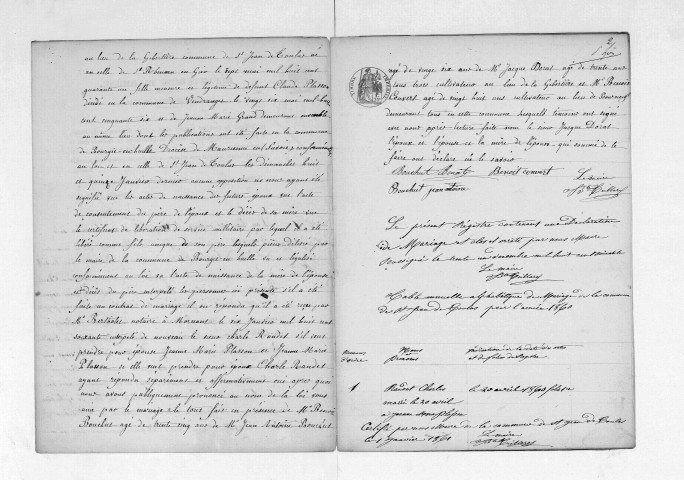 au lieu de la Gibertière commune de St Jean de Toulas né
en celle de St Romain en Gier le sept mai mil huit cent
quarante un fille mineure et légitime de défunt Claude Plasson
décédé en la commune de le vingt six mai mil huit
cent cinquante six et de Jeanne Marie Grand demeurant ensemble
au même lieu dont les publications ont été faite en la commune
de Bourget en huile de Maurienne en Savoie conformément
au loi et en celle de St Jean de Toulas les dimanches huit
et quinze Janvier dernier aucune opposition ne nous ayant été
signifié vu les actes de naissance des futurs époux vu l'acte
de consentement du père de l'époux et le décès de sa mère vu
le certificat de libération de service militaire par lequel il a été
libéré comme fils unique de son père lesquels pièces délivré par
le maire de la commune de Bourget en huile vu et légalisé
conformément au loi vu l'acte de naissance de la mère de l'épouse
et décès du père interpellé les personnes ici présente s'il a été
fait un contrat de mariage il on répondu qu'il a été reçu par
Me notaire à Mornant le six Janvier mil huit cent
soixante interpelé de nouveau le sieur Charle Raudet s'il veut
prendre pour épouse Jeanne Marie Plasson et Jeanne Marie
Plasson si elle veut prendre pour époux Charle Raudet
ayant répondu séparément et affirmativement oui après quoi
nous avons publiquement prononcé au nom de la loi sont
unie par le mariage le tous fait en présence de Mr Benoit
Bouchut age de trente cinq ans de Mr Jean Antoine Bouchut
2
agé de vingt six ans de Mr Jacque Dorat agé de trente ans
tous trois cultivateur au lieu de la Gibertière et Mr Benoit
Convert agé de vingt huit ans cultivateur au lieu de
demeurant tous en cette commune lesquels témoins ont signé
avec nous après lecture faite non le sieur Jacque Dorat
l'époux et l'épouse et la mère de l'époux qui sommé de le
faire ont déclaré ne le savoir
Bouchut Benoit Benoit Convert
Bouchut jean toine Le maire
Le présent Registre contenant une Déclaration
de Mariage et clos et arrêté par nous Maire
Soussigné le trente un décembre mil huit cent soixante
Le maire
Table annuelle alphabétique des Mariage de la commune
de St jean de Toulas pour l'année 1860
Numeros d'ordre Noms Prénoms Indication de la date des actes et des folios du Registre
1 Raudet Charles le 20 avril 1860 folio 2
marié le 20 avril
a jeanne marie plasson
Certifié par nous Maire de la commune de St jean de Toulas
le 1 janvier 1861 Le maire